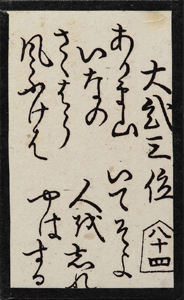 大弐三位
八十四
ありま山
いなの
さゝはら
風ふけは
いてそよ
人を忘れ
やはする